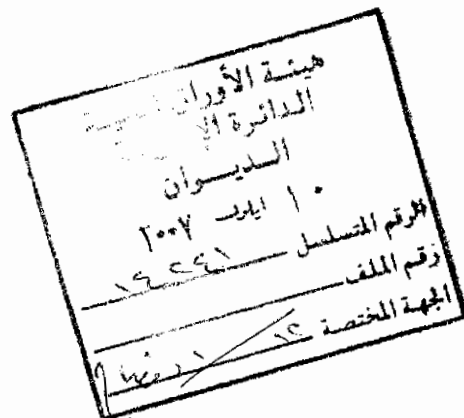 هيئة الأوراق
الدائرة
الديوان
١٠ ايلول ٢٠٠٧
الرقم المتسلسل ١٤٢٤١
رقم الملف
الجهة المختصة